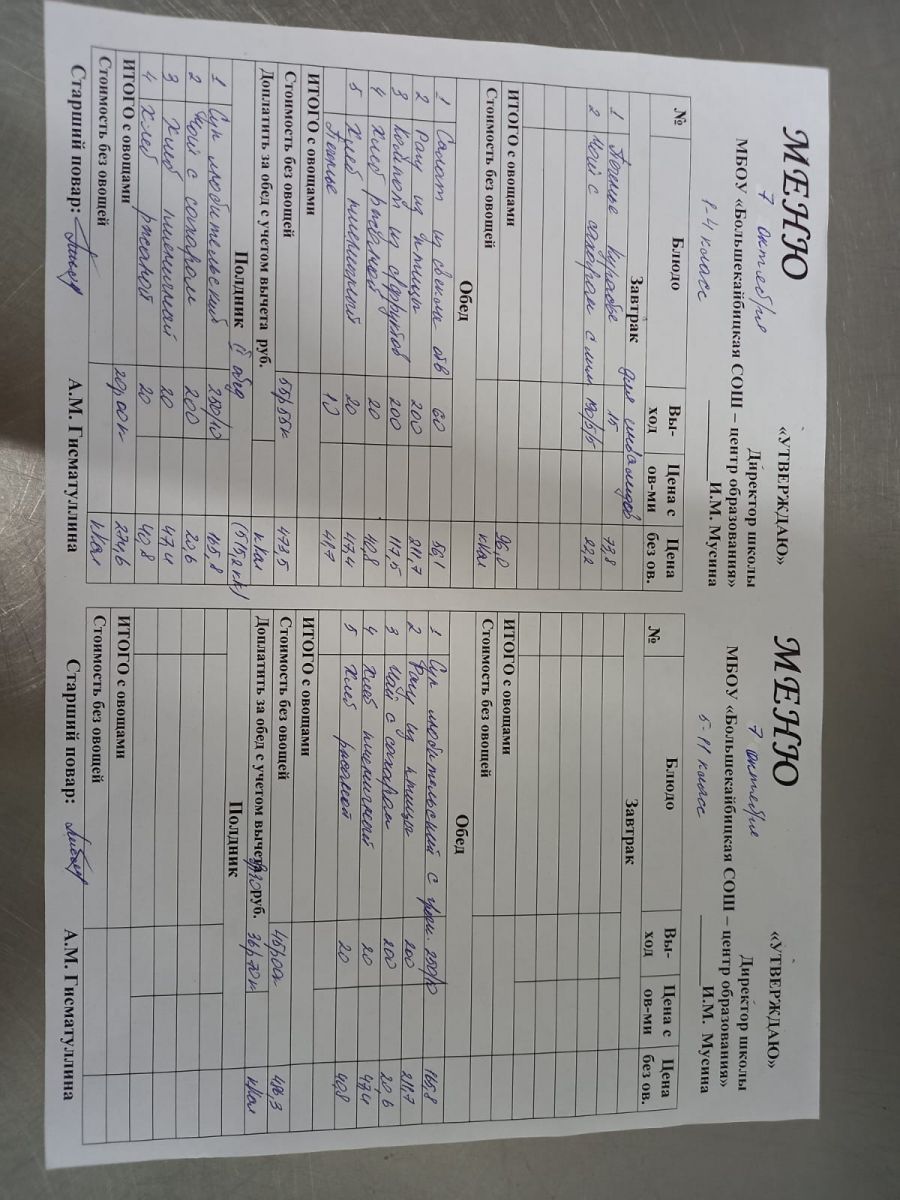 МЕНЮ
«УТВЕРЖДАЮ»
Директор школы
МБОУ «Большекайбицкая СОШ – центр образования»
7 октября И.М. Мусина
1-4 класс
№ Блюдо Вы-ход Цена с ов-ми Цена без ов.
Завтрак для инвалидов
1 Печенье Курабье 15 73,8
2 Чай с сахаром с лим 190/5/5 22,2
ИТОГО с овощами 96,0
Стоимость без овощей ккал
Обед
1 Салат из свеклы отв 60 56,1
2 Рагу из птицы 200 211,7
3 Компот из с/фруктов 200 117,5
4 Хлеб ржаной 20 40,8
5 Хлеб пшеничный 20 47,4
Печенье 10 41,7
ИТОГО с овощами
Стоимость без овощей 55р55к 473,5
Доплатить за обед с учетом вычета руб. ккал
Полдник II обед (515,2 кк)
1 Суп любительский 250/10 165,8
2 Чай с сахаром 200 20,6
3 Хлеб пшеничный 20 47,4
4 Хлеб ржаной 20 40,8
ИТОГО с овощами 20р00к 274,6
Стоимость без овощей ккал
Старший повар: А.М. Гисматуллина
МЕНЮ
«УТВЕРЖДАЮ»
Директор школы
МБОУ «Большекайбицкая СОШ – центр образования»
7 октября И.М. Мусина
5-11 класс
№ Блюдо Вы-ход Цена с ов-ми Цена без ов.
Завтрак
ИТОГО с овощами
Стоимость без овощей
Обед
1 Суп любительский с 250/10 165,8
2 Рагу из птицы 200 211,7
3 Чай с сахаром 200 20,6
4 Хлеб пшеничный 20 47,4
5 Хлеб ржаной 20 40,8
ИТОГО с овощами
Стоимость без овощей 45р00к 486,3
Доплатить за обед с учетом вычета руб. 36р70к ккал
Полдник
ИТОГО с овощами
Стоимость без овощей
Старший повар: А.М. Гисматуллина